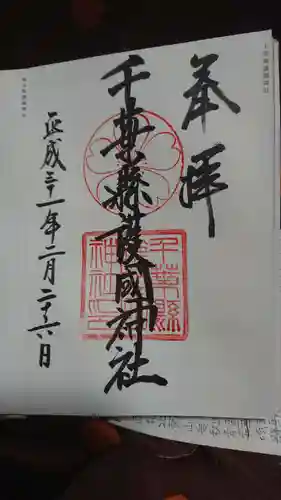 奉拝
千葉縣護國神社
千葉縣護國神社印
平成三十一年二月二十六日